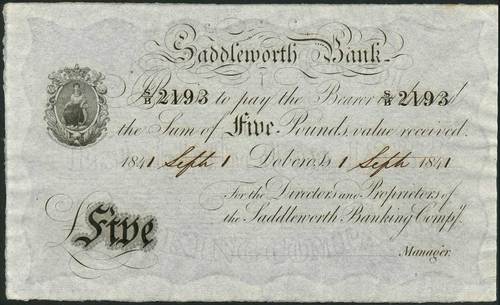 Saddleworth Bank
S/B 2193 to pay the Bearer S/B 2193
the Sum of Five Pounds, value received.
1841 Septr 1 Dobcross, 1 Septr 1841
For the Directors and Proprietors of
the Saddleworth Banking Compy.
£Five
Manager.